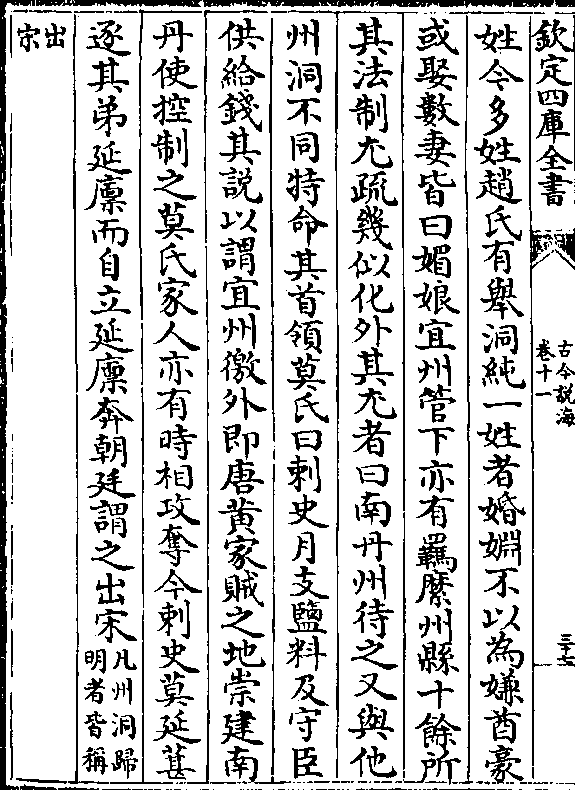 欽定四庫全書
古今説海
卷十一
三十七
姓今多姓趙氏有舉洞純一姓者婚婣不以為嫌酋豪
或娶數妻皆曰媚娘宜州管下亦有羈縻州縣十餘所
其法制尤疏幾似化外其尤者曰南丹州待之又與他
州洞不同特命其首領莫氏曰刺史月支鹽料及守臣
供給錢其説以謂宜州徼外即唐黄家賊之地崇建南
丹使控制之莫氏家人亦有時相攻奪今刺史莫延葚
逐其弟延廪而自立延廪奔朝廷謂之出宋
凡州洞歸
明者皆稱
出
宋